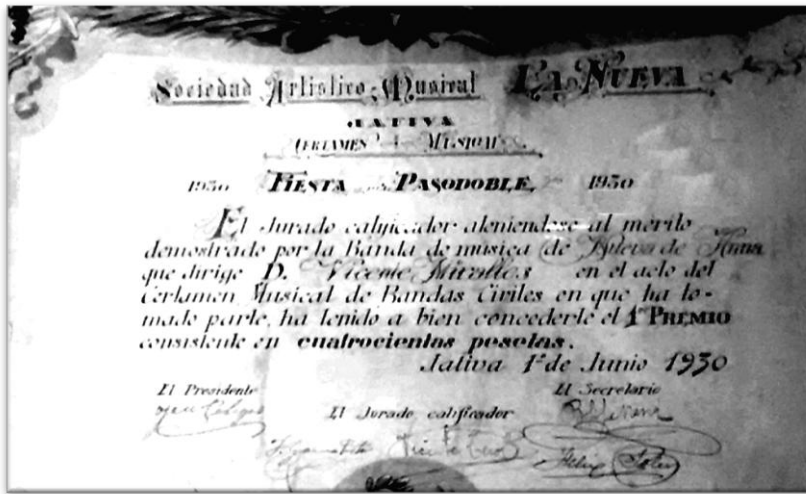 Sociedad Artistico-Musical LA NUEVA
JATIVA
CERTAMEN MUSICAL
1930 FIESTA PASODOBLE, 1930
El Jurado calificador ateniendose al merito
demostrado por la Banda de musica de
que dirige D. Vicente Miralles en el acto del
Certamen Musical de Bandas Civiles en que ha to-
mado parte, ha tenido a bien concederle el 1er PREMIO
consistente en cuatrocientas pesetas.
Jativa 1º de Junio 1930
El Presidente El Secretario
El Jurado calificador